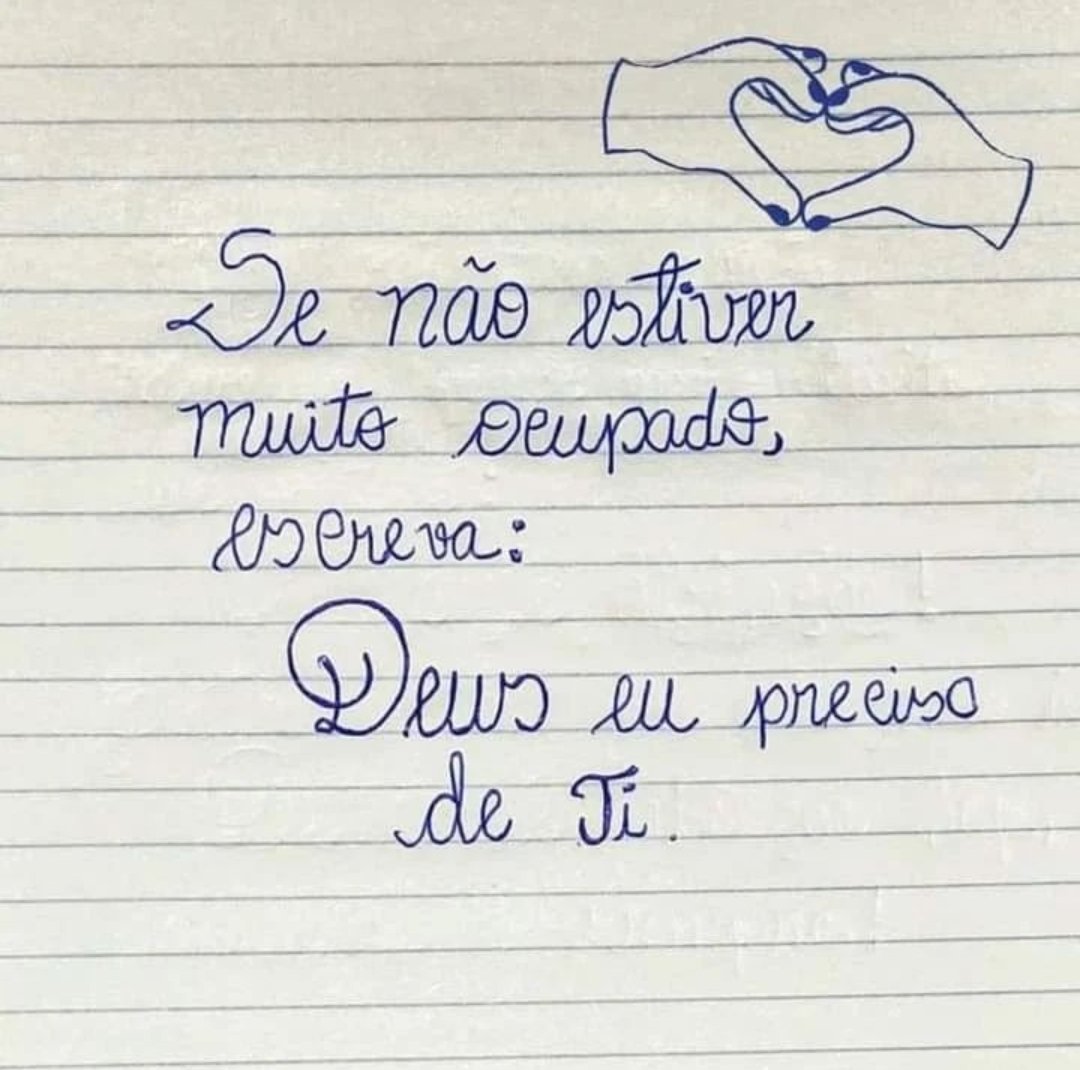 Se não estiver
muito ocupado,
escreva:
Deus eu preciso
de Ti.